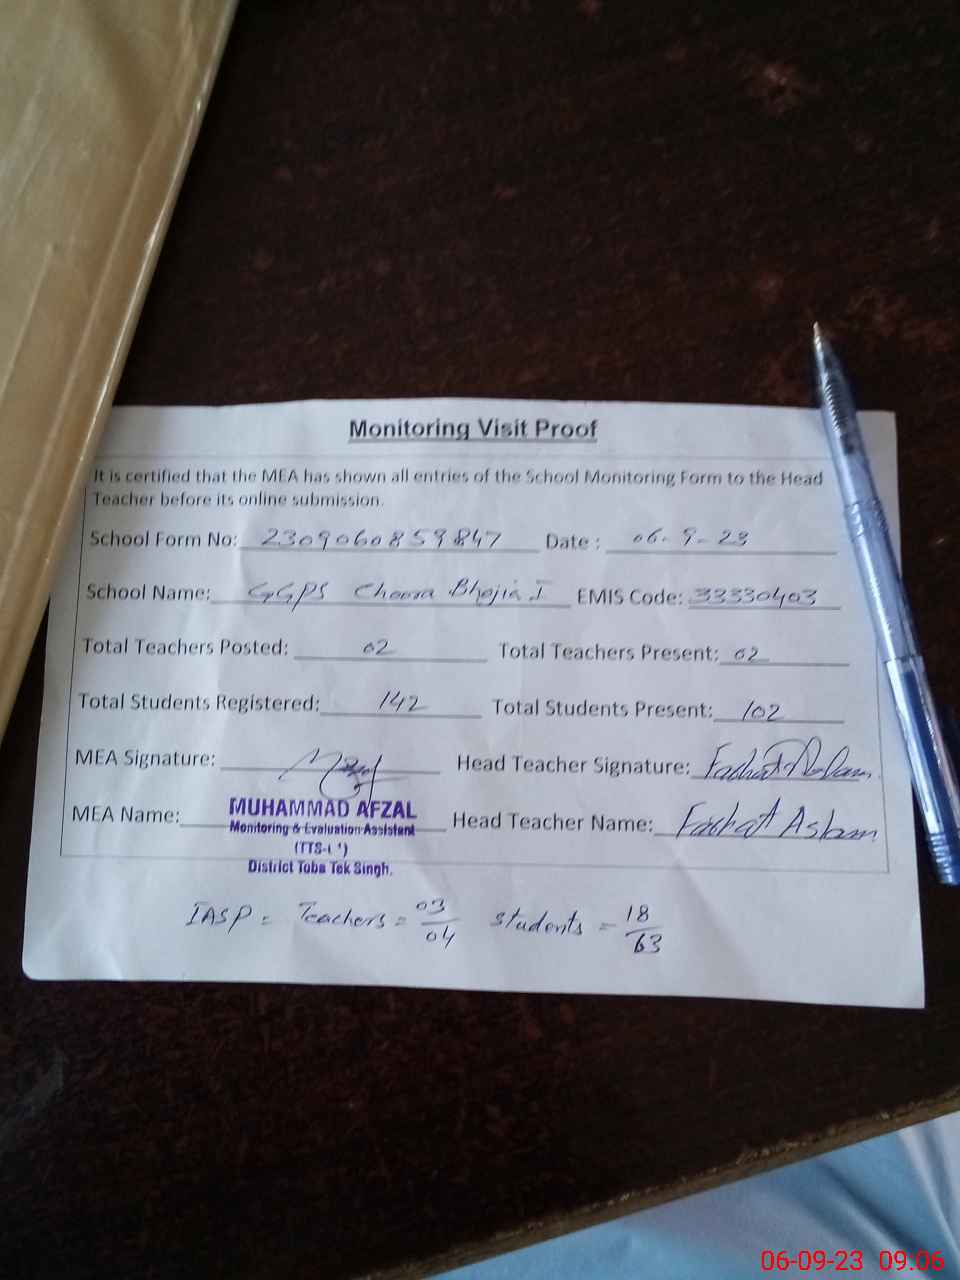 Monitoring Visit Proof
It is certified that the MEA has shown all entries of the School Monitoring Form to the Head
Teacher before its online submission.
School Form No: 2309060859847 Date : 06-9-23
School Name: GGPS Choora Bhojia I EMIS Code: 33330403
Total Teachers Posted: 02 Total Teachers Present: 02
Total Students Registered: 142 Total Students Present: 102
MEA Signature: Head Teacher Signature: Farhat Aslam
MEA Name: MUHAMMAD AFZAL Head Teacher Name: Farhat Aslam
Monitoring & Evaluation Assistant
District Toba Tek Singh.
IASP = Teachers = 03/04 Students = 18/63
06-09-23 09.06